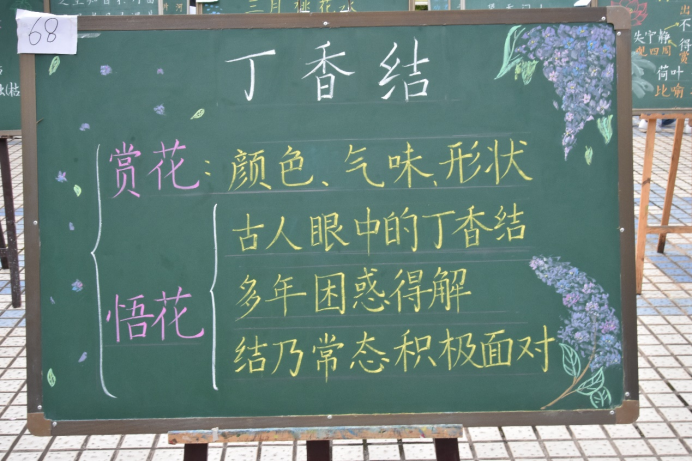 68
三月桃花水
丁香结
赏花：颜色、气味、形状
悟花
古人眼中的丁香结
多年困惑得解
结乃常态积极面对
荷叶
比喻